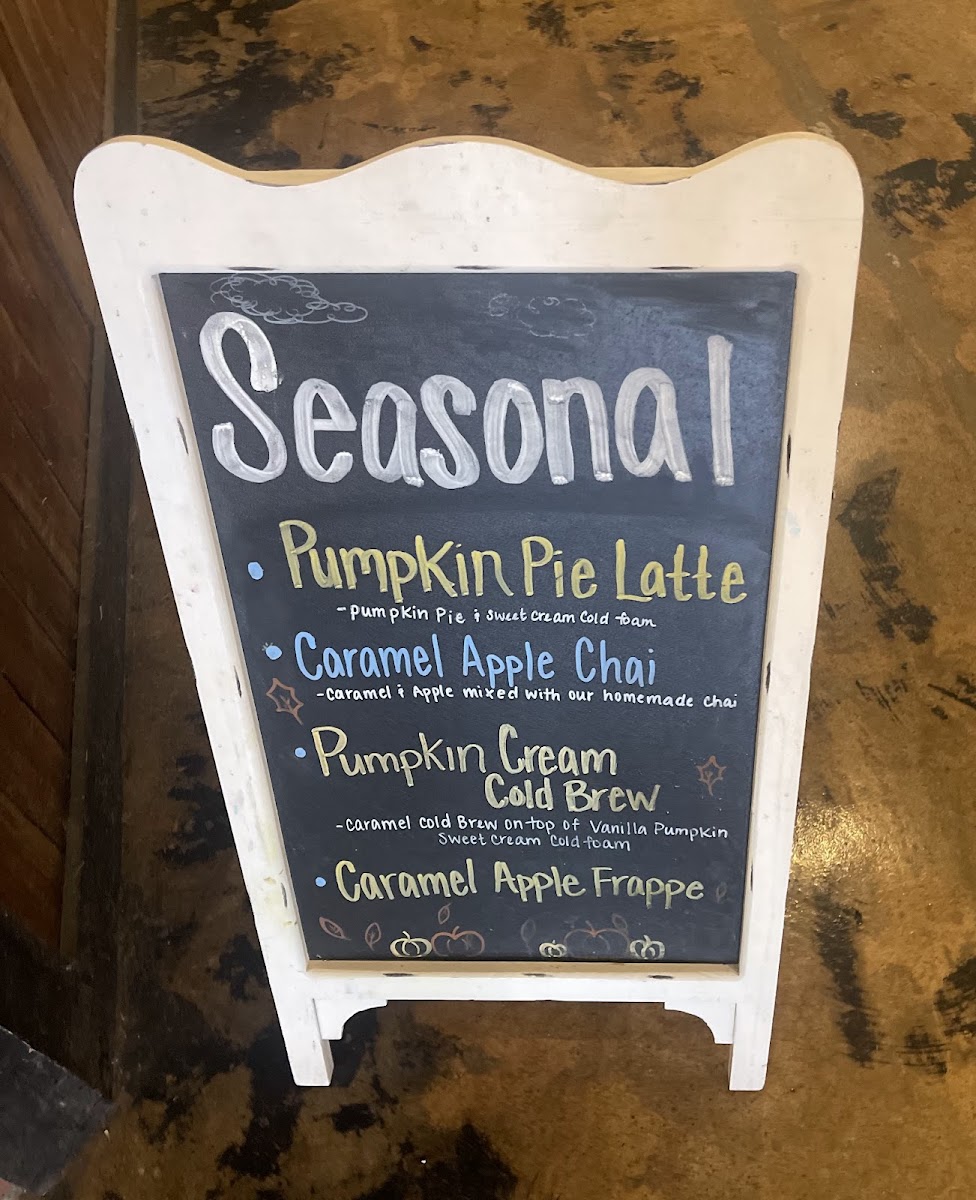 Seasonal
• Pumpkin Pie Latte
-Pumpkin Pie & Sweet Cream Cold foam
• Caramel Apple Chai
-Caramel & Apple mixed with our homemade chai
• Pumpkin Cream
Cold Brew
-Caramel Cold Brew on top of Vanilla Pumpkin
Sweet Cream Cold foam
• Caramel Apple Frappe